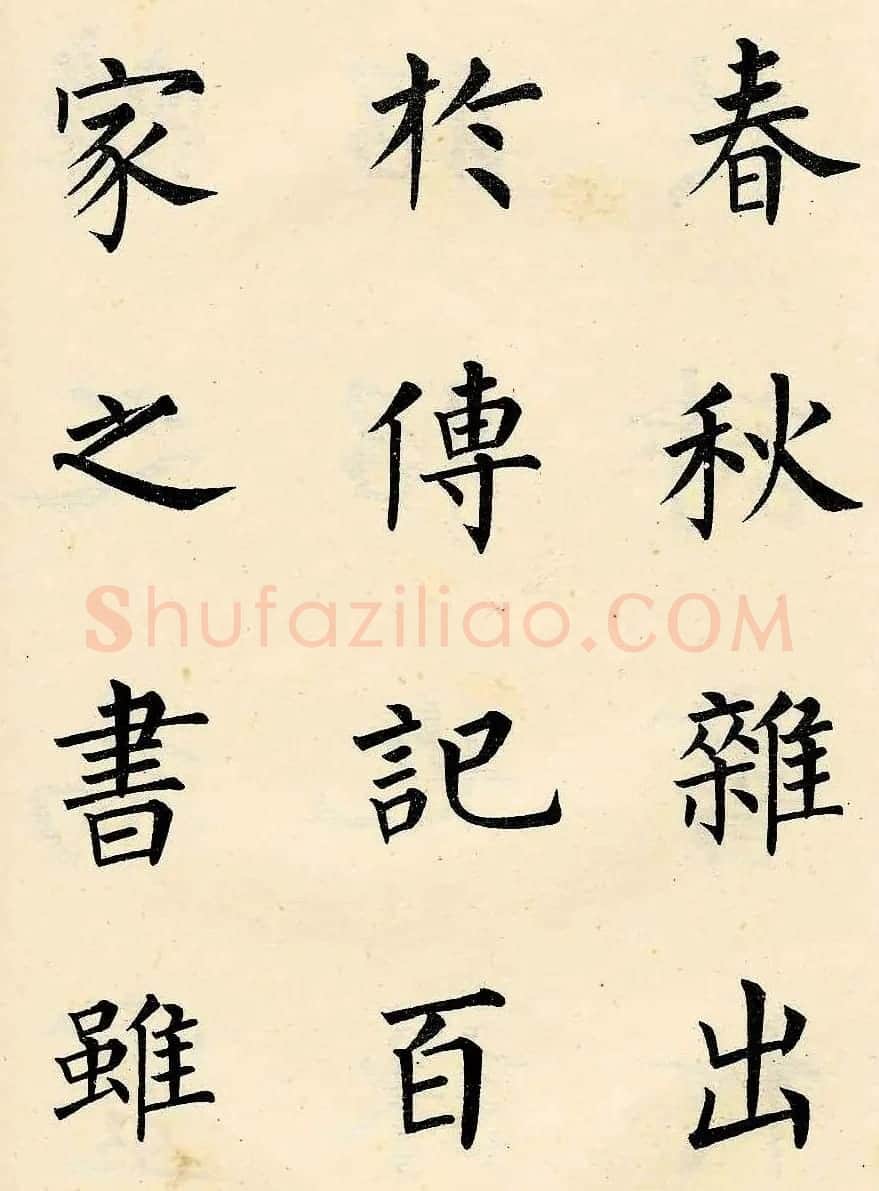 春秋雜出
於傳記百
家之書雖
Shufaziliao.COM